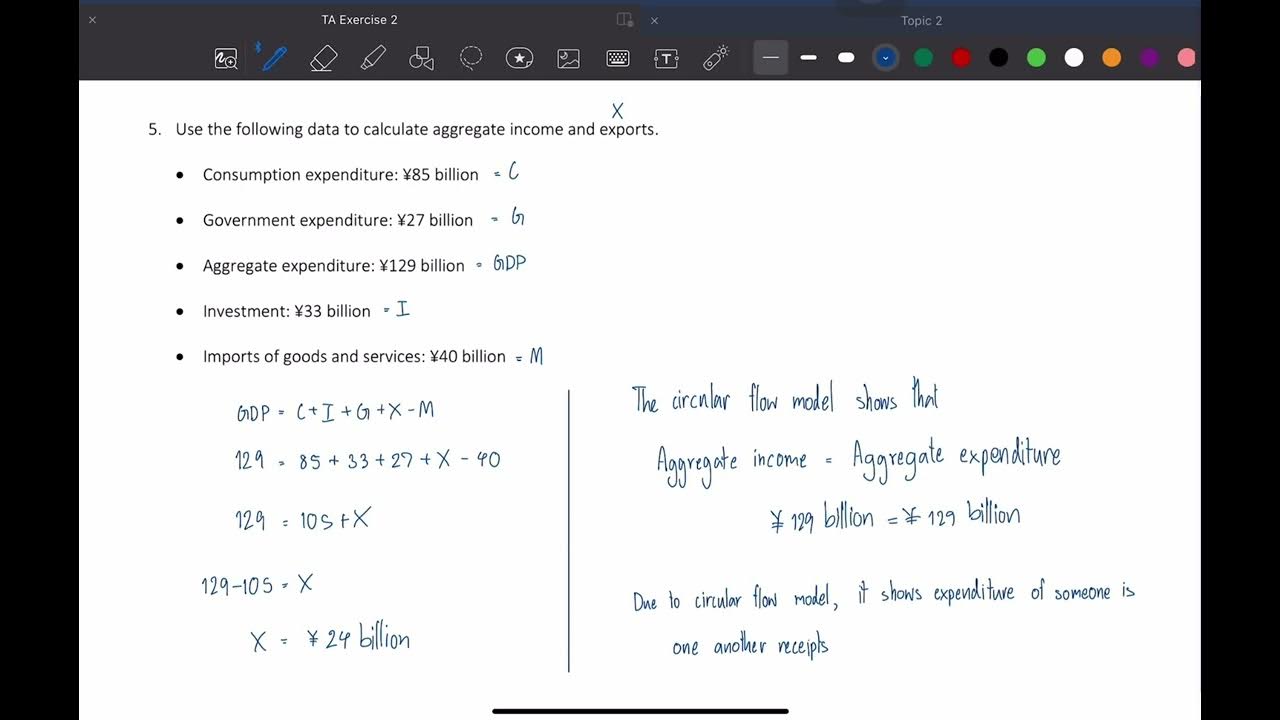 TA Exercise 2
Topic 2
X
5. Use the following data to calculate aggregate income and exports.
• Consumption expenditure: ¥85 billion = C
• Government expenditure: ¥27 billion = G
• Aggregate expenditure: ¥129 billion = GDP
• Investment: ¥33 billion = I
• Imports of goods and services: ¥40 billion = M
GDP = C + I + G + X - M
129 = 85 + 33 + 27 + X - 40
129 = 105 + X
129 - 105 = X
X = ¥ 24 billion
The circular flow model shows that
Aggregate income = Aggregate expenditure
¥ 129 billion = ¥ 129 billion
Due to circular flow model, it shows expenditure of someone is
one another receipts